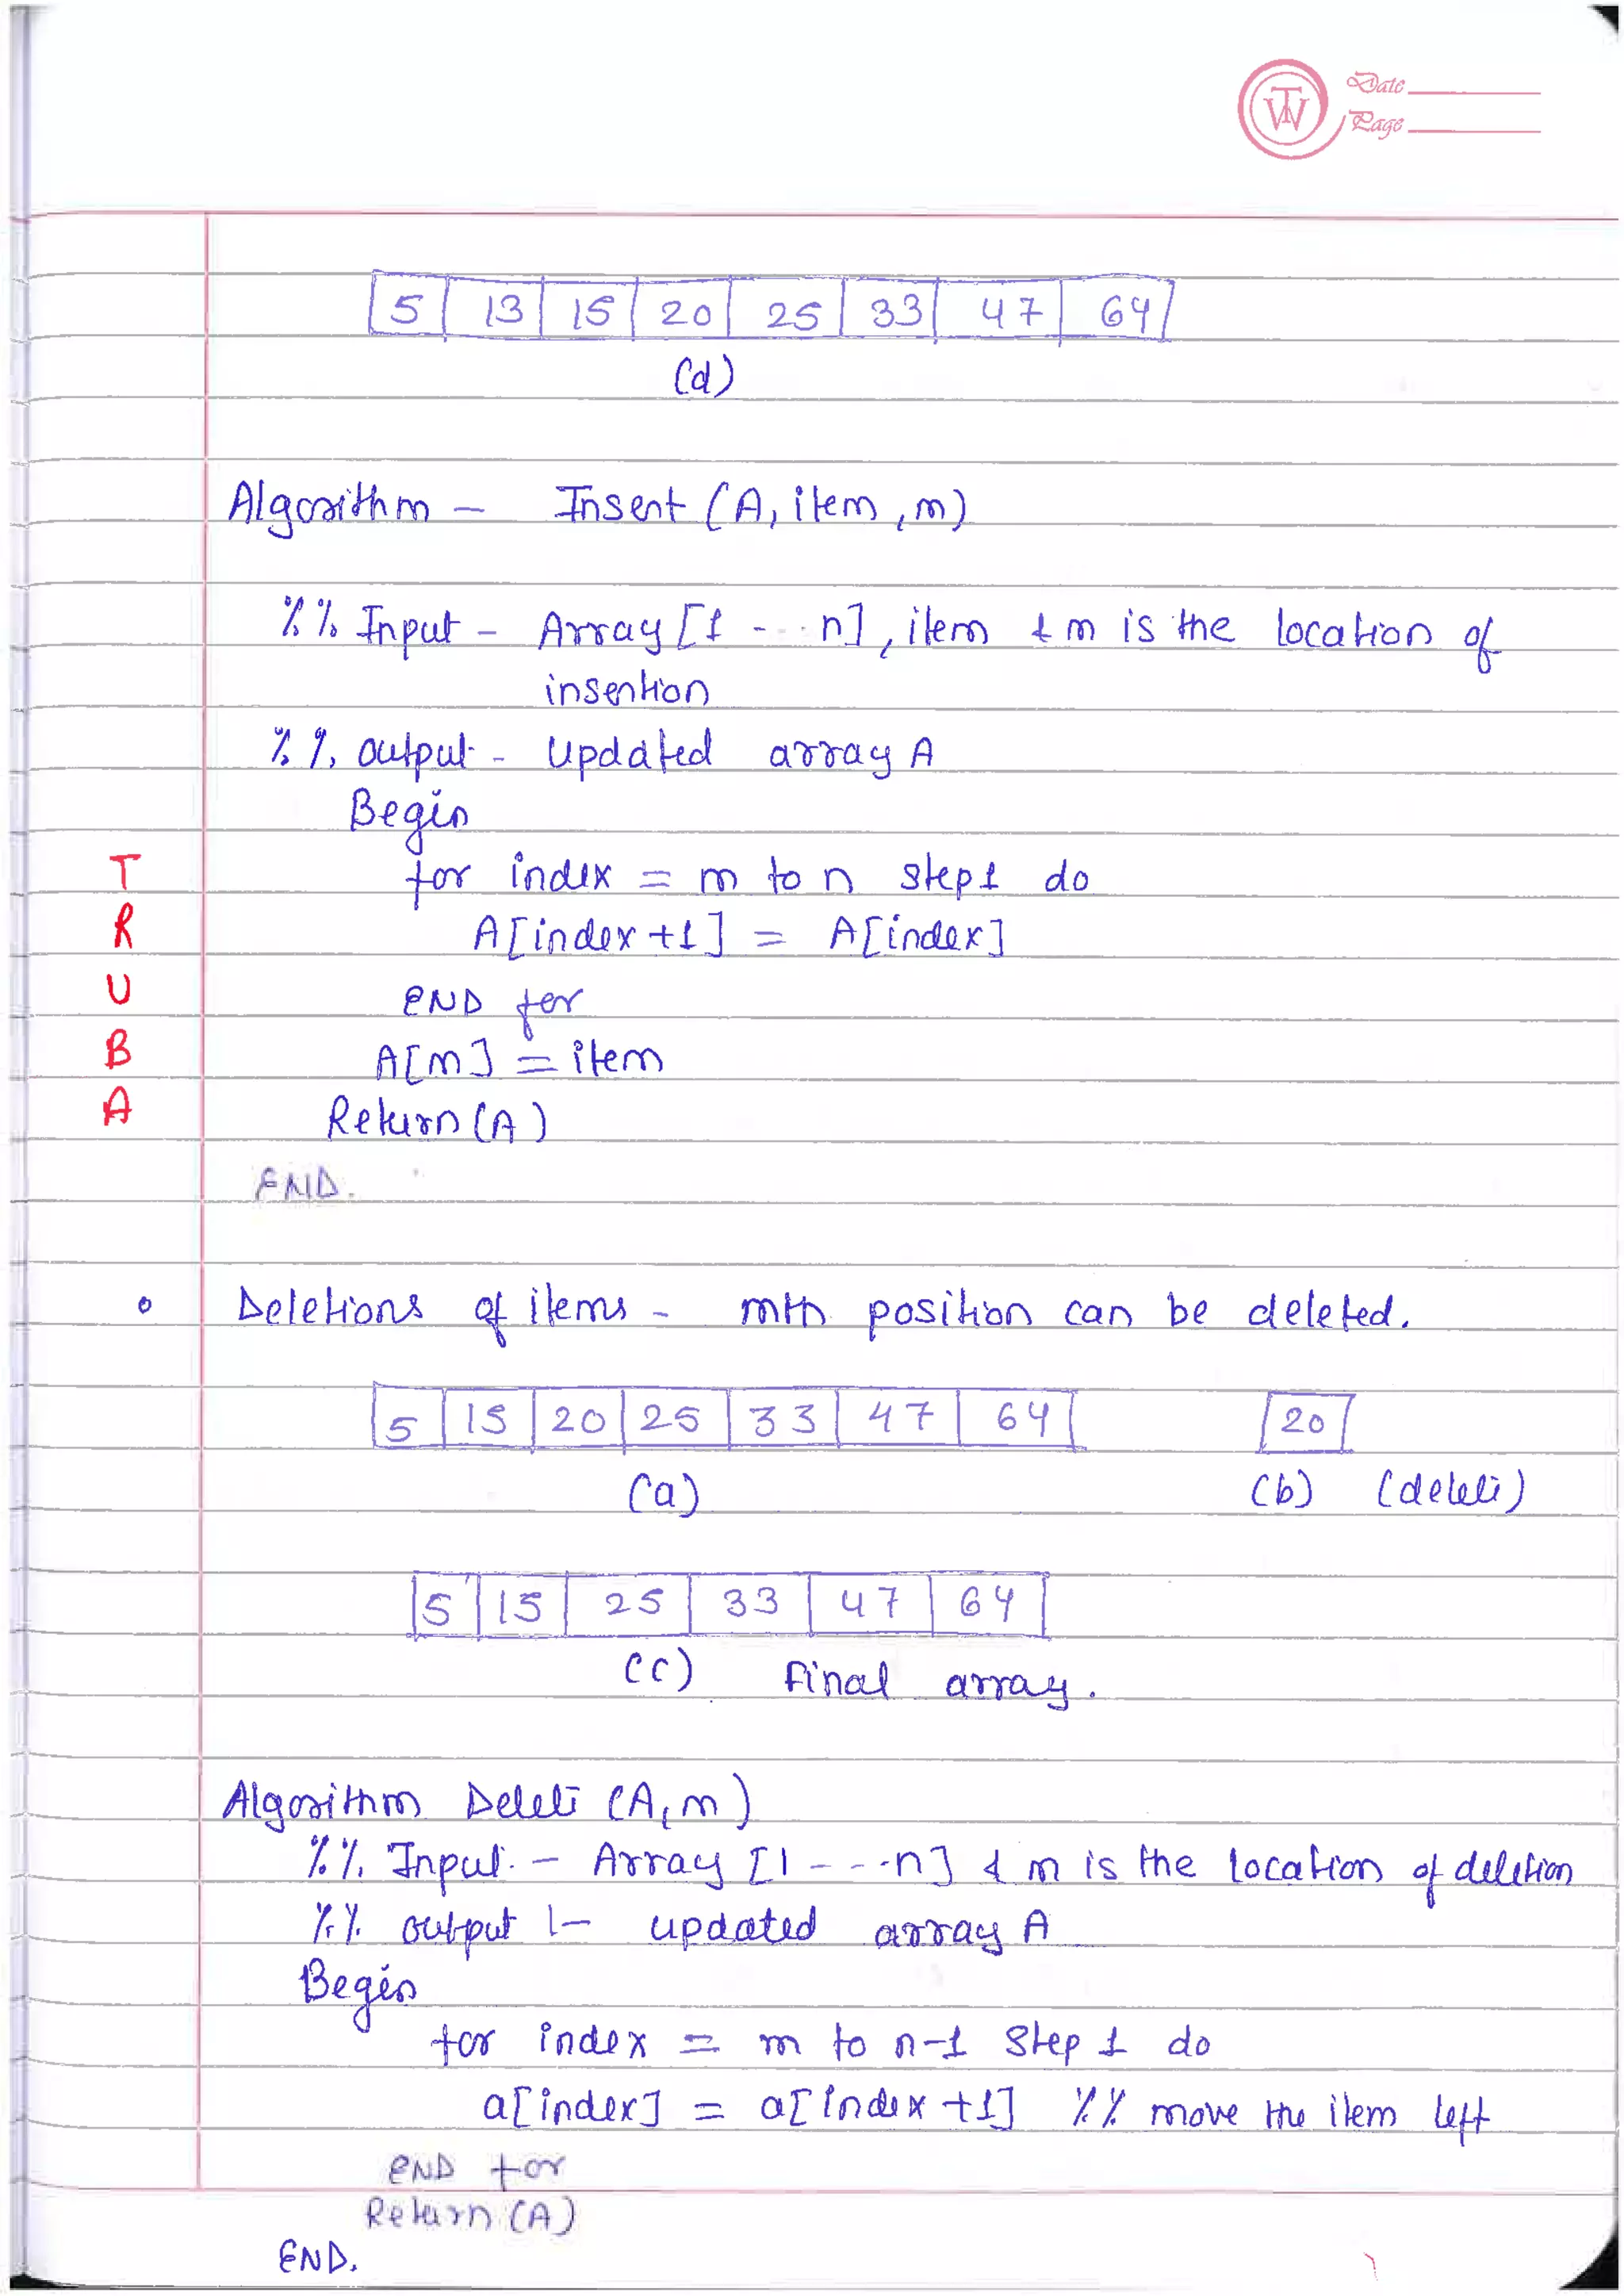 TW Date
Page
5 13 15 20 25 33 47 64
(d)
Algorithm - Insert (A, item, m)
%% Input - Array [1 - - - n], item & m is the location of
insertion
%% output - Updated array A
Begin
for index = m to n step 1 do
A[index+1] = A[index]
END for
A[m] = item
Return (A)
END.
T
R
U
B
A
• Deletions of items - mth position can be deleted.
5 15 20 25 33 47 64 20
(a) (b) (delete)
5 15 25 33 47 64
(c) Final array.
Algorithm Delete (A, m)
%% Input - Array [1 - - - n] & m is the location of deletion
%% output :- updated array A
Begin
for index = m to n-1 Step 1 do
a[index] = a[index +1] %% move the item left
END for
Return (A)
END.